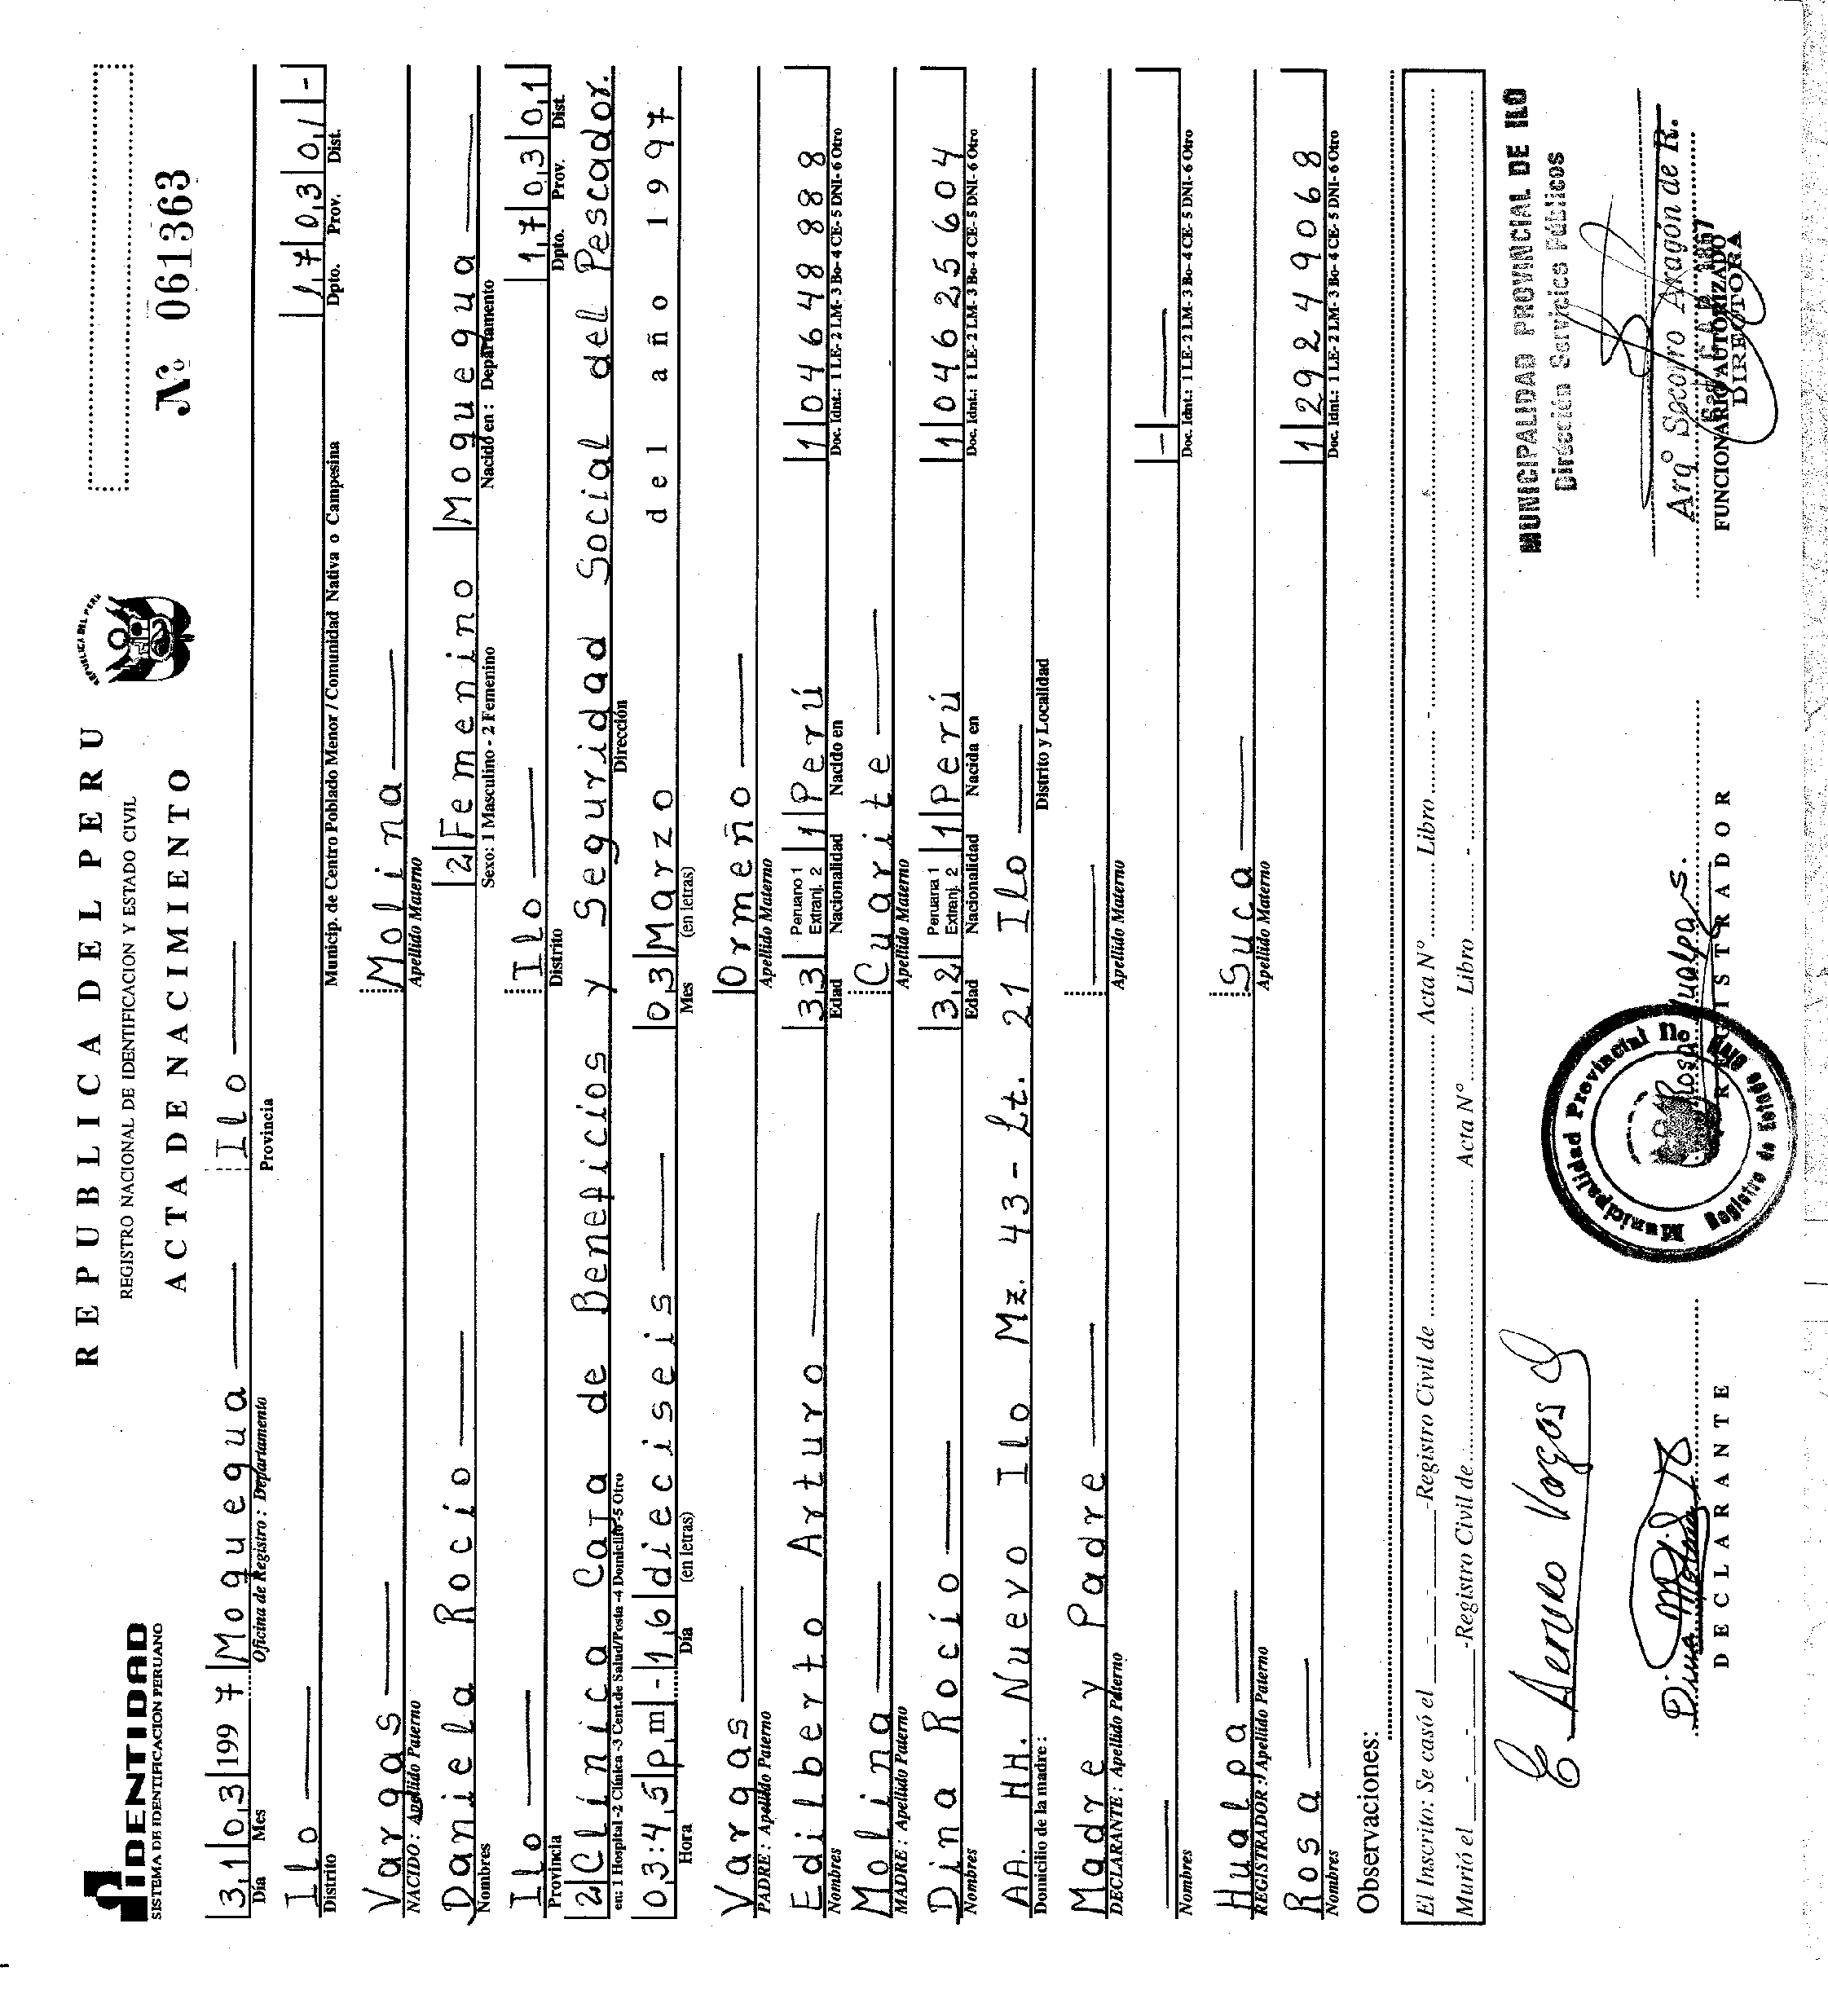 IDENTIDAD
SISTEMA DE IDENTIFICACION PERUANO
REPUBLICA DEL PERU
REGISTRO NACIONAL DE IDENTIFICACION Y ESTADO CIVIL
ACTA DE NACIMIENTO
REPUBLICA DEL PERU
Nº 061363
3,1 0,3 199 7 Moquegua Ilo
Día Mes Oficina de Registro : Departamento Provincia
Ilo 1,7 0,3 0,1 -
Distrito Municip. de Centro Poblado Menor / Comunidad Nativa o Campesina Dpto. Prov. Dist.
Vargas Molina
NACIDO : Apellido Paterno Apellido Materno
Daniela Rocio 2 Femenino Moquegua
Nombres Sexo: 1 Masculino - 2 Femenino Nacido en : Departamento
Ilo Ilo 1,7 0,3 0,1
Provincia Distrito Dpto. Prov. Dist.
2 Clínica Caja de Beneficios y Seguridad Social del Pescador.
en: 1 Hospital -2 Clínica -3 Cent.de Salud/Posta -4 Domicilio -5 Otro Dirección
03:4,5 p,m - 1,6 dieciseis 0,3 Marzo del año 1997
Hora Día (en letras) Mes (en letras)
Vargas Ormeño
PADRE : Apellido Paterno Apellido Materno
Edilberto Arturo 3,3 Peruano 1 Extranj. 2 1 Perú 1 04648888
Nombres Edad Nacionalidad Nacido en Doc. Idnt.: 1 LE- 2 LM- 3 Bo- 4 CE- 5 DNI- 6 Otro
Molina Cuarite
MADRE : Apellido Paterno Apellido Materno
Dina Rocío 3,2 Peruana 1 Extranj. 2 1 Perú 1 04625604
Nombres Edad Nacionalidad Nacida en Doc. Idnt.: 1 LE- 2 LM- 3 Bo- 4 CE- 5 DNI- 6 Otro
AA. HH. Nuevo Ilo Mz. 43 - Lt. 21 Ilo
Domicilio de la madre : Distrito y Localidad
Madre y Padre
DECLARANTE : Apellido Paterno Apellido Materno
-
Nombres Doc. Idnt.: 1 LE- 2 LM- 3 Bo- 4 CE- 5 DNI- 6 Otro
Hualpa Suca
REGISTRADOR : Apellido Paterno Apellido Materno
Rosa 1 29249068
Nombres Doc. Idnt.: 1 LE- 2 LM- 3 Bo- 4 CE- 5 DNI- 6 Otro
Observaciones:
El Inscrito: Se casó el - - -Registro Civil de Acta Nº Libro -
Murió el - - -Registro Civil de Acta Nº Libro -
MUNICIPALIDAD PROVINCIAL DE ILO
Dirección Servicios Públicos
E Arturo Vargas O
Dina Molina
Municipalidad Provincial Ilo
Registro de Estado Civil
Rosa Hualpa S.
Arqº Socorro Aragón de R.
DECLARANTE REGISTRADOR FUNCIONARIO AUTORIZADO
DIRECTORA